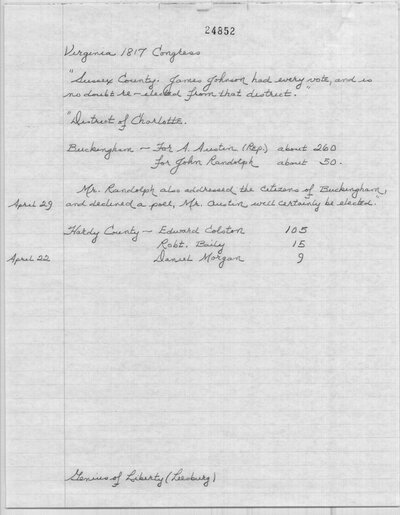 24852
Virginia 1817 Congress
"Sussex County. James Johnson had every vote, and is
no doubt re-elected from that district."
"District of Charlotte.
Buckingham — For A. Austin (Rep.) about 260
For John Randolph about 50.
Mr. Randolph also addressed the citizens of Buckingham,
April 29 and declined a poll, Mr. Austin will certainly be elected."
Hardy County — Edward Colston 105
Robt. Baily 15
April 22 Daniel Morgan 9
Genius of Liberty (Leesburg)